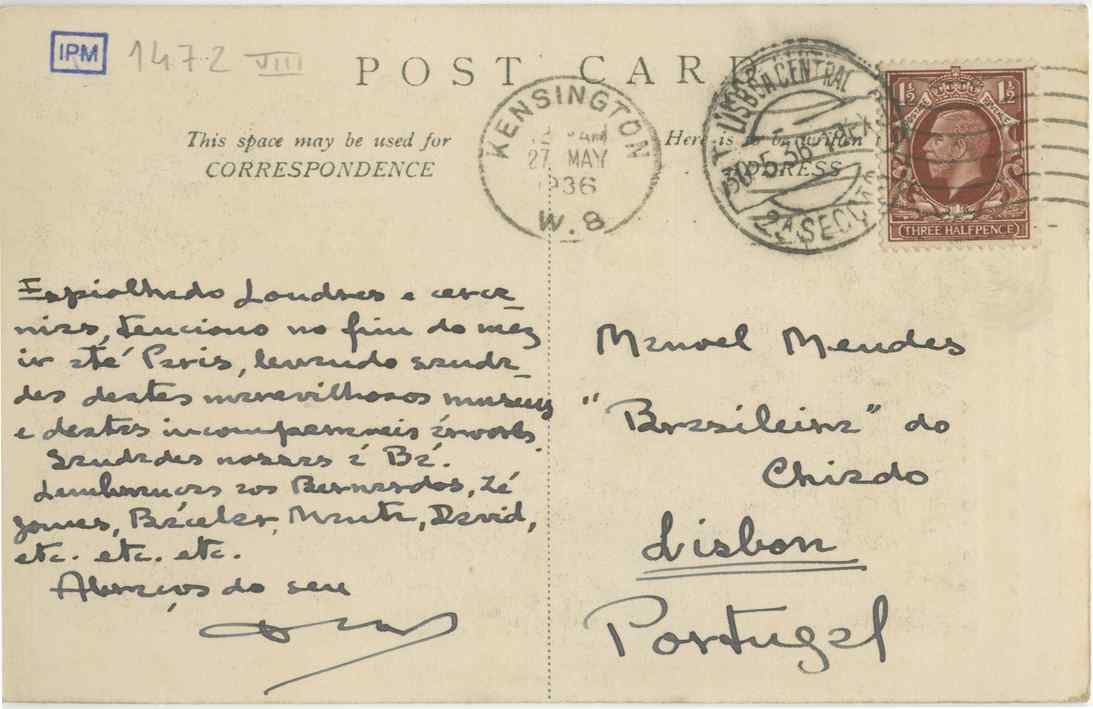 IPM 1472 VIII
POST CARD
This space may be used for
CORRESPONDENCE
Here is to be written
ADDRESS
KENSINGTON
27 MAY
1936
W.8
LISBOA CENTRAL
30.5.36
2ª SECÇÃO
1½ 1½
THREE HALFPENCE
Espiolhado Londres e cerca-
nias, tenciono no fim do mês
ir até Paris, levando sauda-
des destes maravilhosos museus
e destas incomparaveis árvores.
Saudades nossas á Bá.
Lembranças aos Bernardos, Zé
Gomes, Bácelar, Manta, David,
etc. etc. etc.
Abraços do seu
Manoel Mendes
"Brasileira" do
Chiado
Lisbon
Portugal